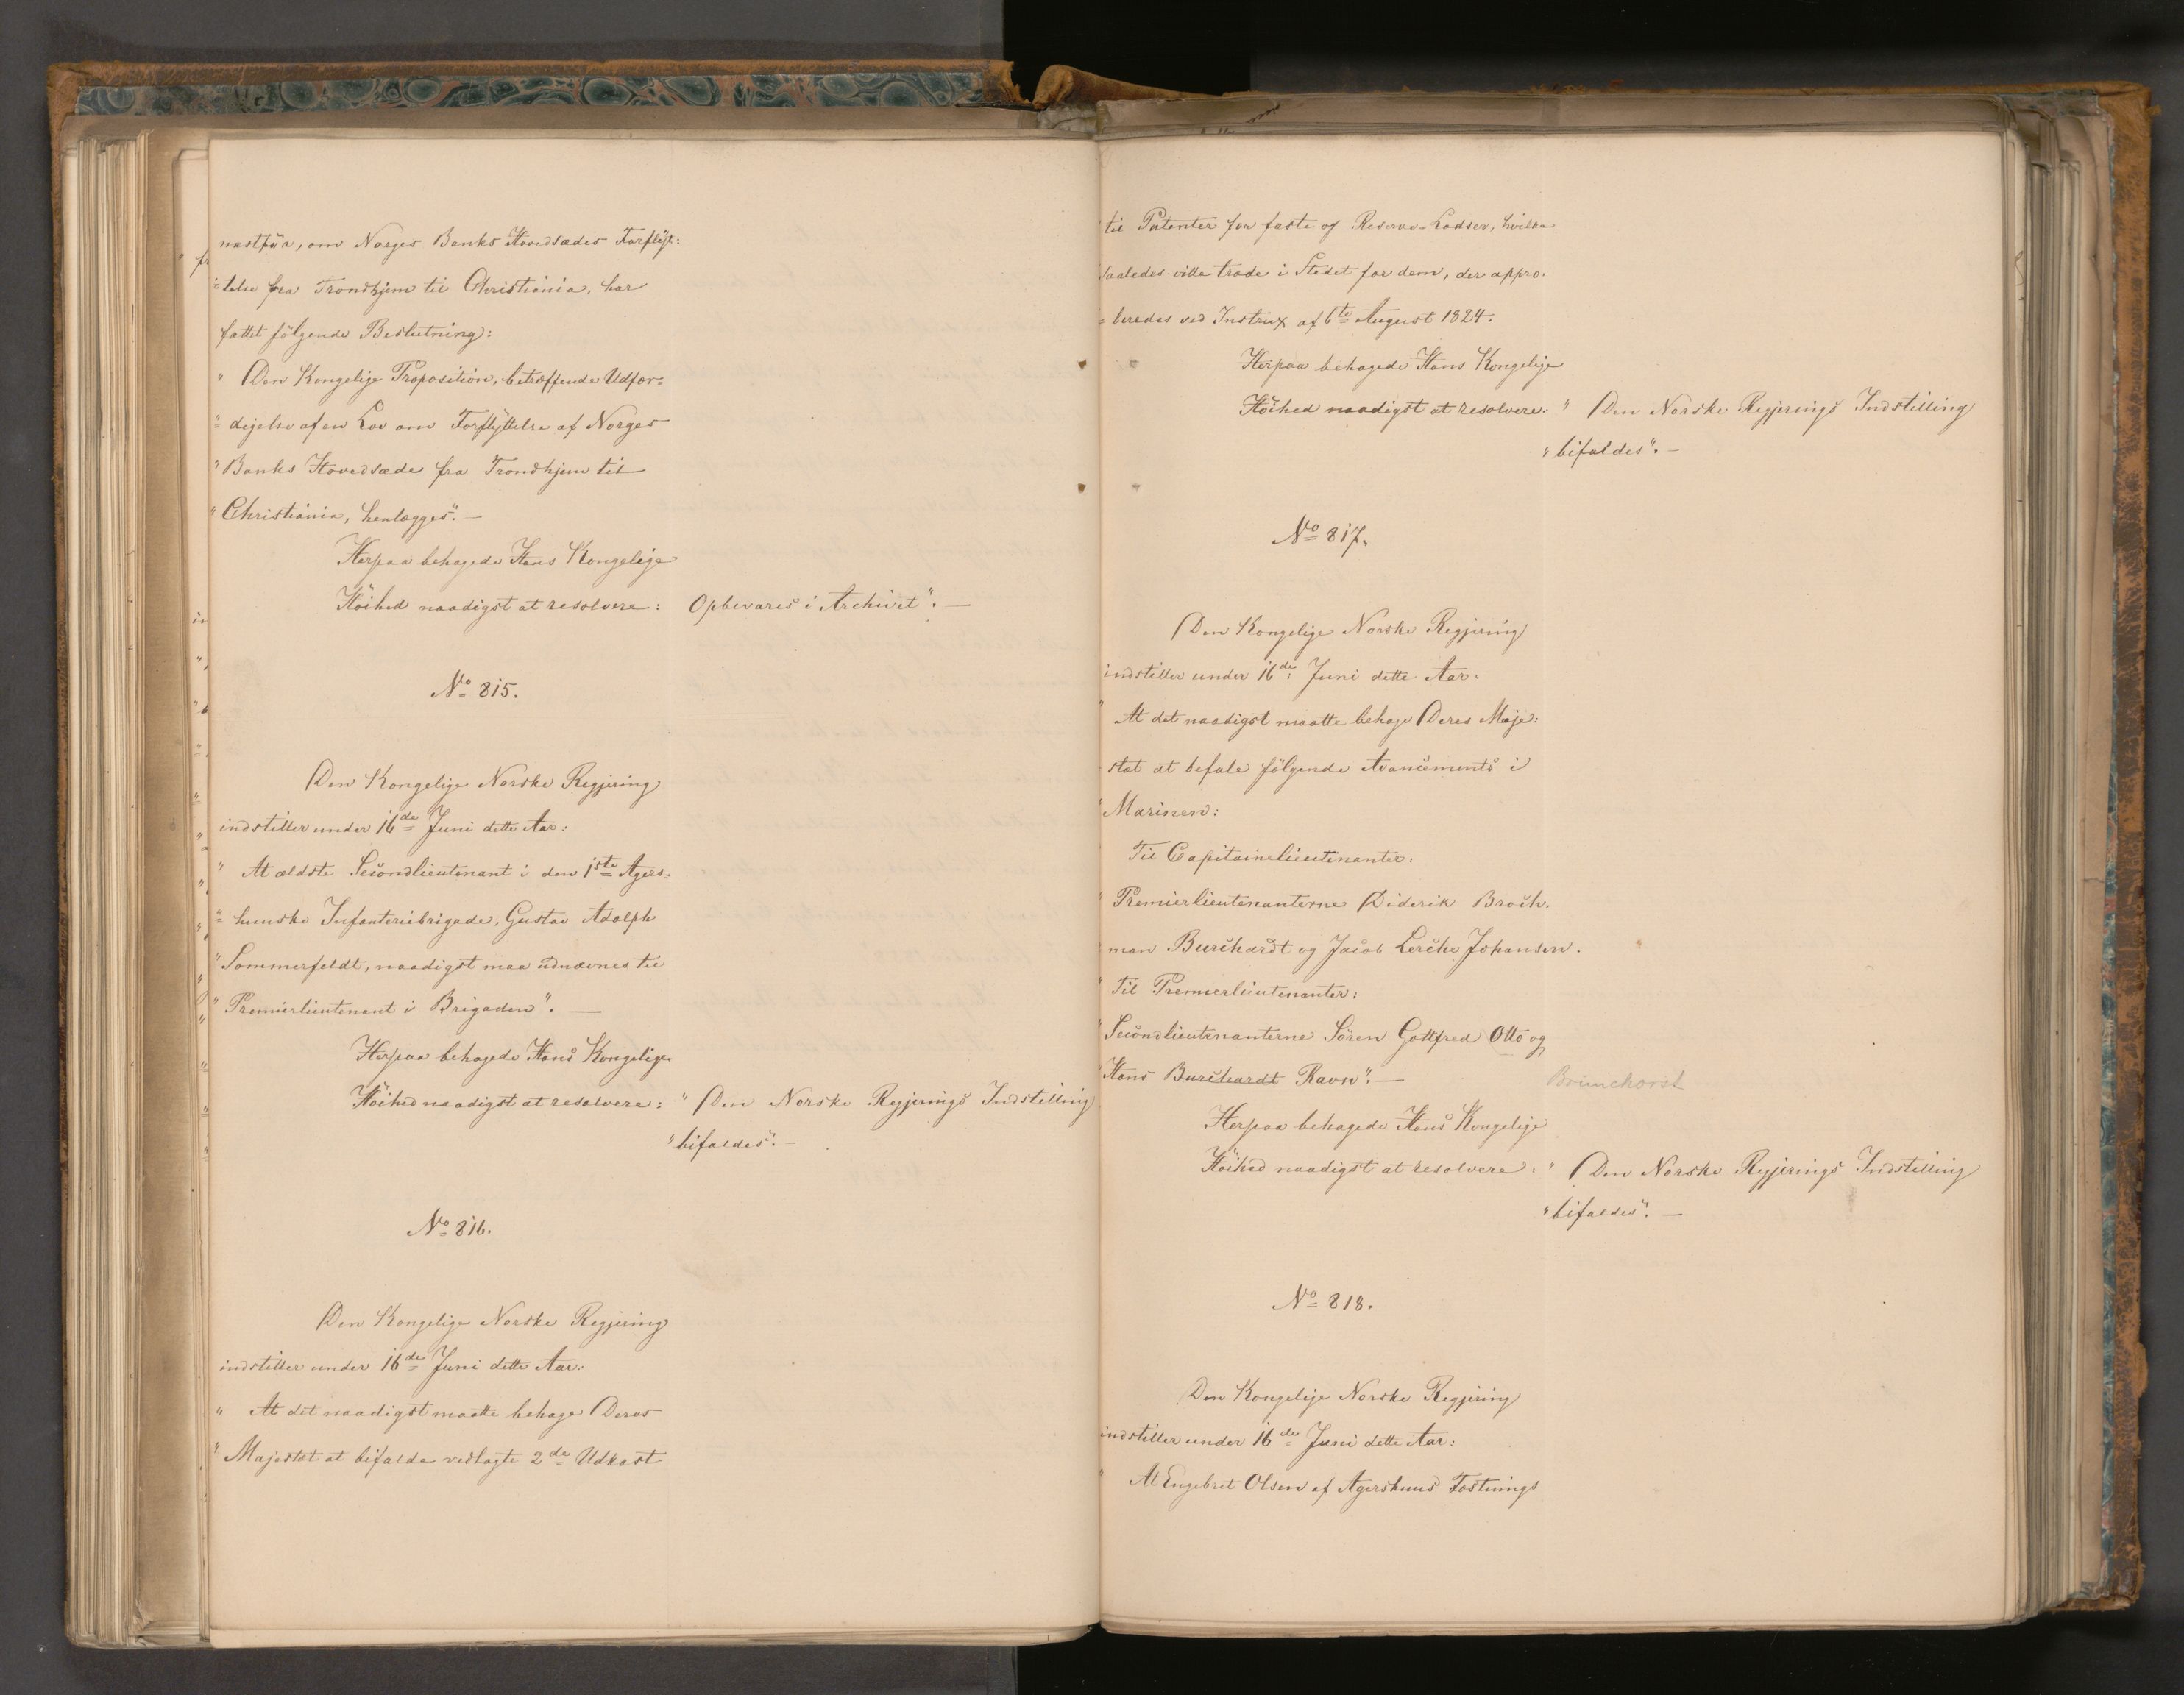 nastfür, om Norges Banks Hovedsædes Forflÿt:
=telse fra Trondhjem til Christiania, har
fattet fölgende Beslutning:
" Den Kongelige Proposition, betræffende Udfær=
" digelse af en Lov om Forflÿttelse af Norges
" Banks Hovedsæde fra Trondhjem til
" Christiania, henlægges". —
Herpaa behagede Hans Kongelige
Höihed naadigst at resolvere: Opbevares i Archivet". —
No 815.
Den Kongelige Norske Regjering
indstiller under 16de Juni dette Aar:
" At ældste Secondlieutenant i den 1ste Agers=
" huuske Infanteribrigade, Gustav Adolph
" Sommerfeldt, naadigst maa udnævnes til
" Premierlieutenant i Brigaden". —
Herpaa behagede Hans Kongelige
Höihed naadigst at resolvere: " Den Norske Regjerings Indstilling
" bifaldes". —
No 816.
Den Kongelige Norske Regjering
indstiller under 16de Juni dette Aar:
" At det naadigst maatte behage Deres
" Majestæt at bifalde vedlagte 2de Udkast
til Patenter for faste og Reserve-Lodser, hvilke
saaledes ville træde i Stedet for dem, der appro-
= beredes ved Instrux af 6te August 1824.
Herpaa behagede Hans Kongelige
Höihed naadigst at resolvere: " Den Norske Regjerings Indstilling
" bifaldes". —
No 817.
Den Kongelige Norske Regjering
indstiller under 16de Juni dette Aar.
" At det naadigst maatte behage Deres Maje:
stæt at befale fölgende Avancements i
" Marinen:
Til Capitainelieutenanter:
" Premierlieutenanterne Diderik Broch-
man Burchardt og Jacob Lerche Johansen.
" Til Premierlieutenanter:
" Secondlieutenanterne Sören Gottfred Otto og
" Hans Burchardt Ravn". — Bruunchorst
Herpaa behagede Hans Kongelige
Höihed naadigst at resolvere: " Den Norske Regjerings Indstilling
" bifaldes". —
No 818.
Den Kongelige Norske Regjering
indstiller under 16de Juni dette Aar:
" At Engebret Olsen af Agershuus Fæstnings